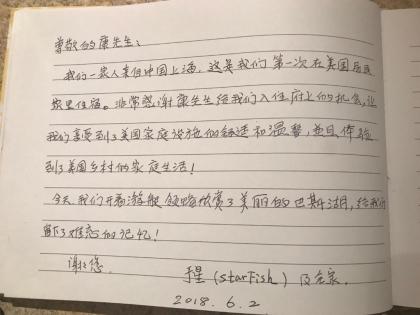 尊敬的康先生：
我们一家人来自中国上海，这是我们第一次在美国居民
家里住宿。非常感谢康先生给我们入住府上的机会，让
我们享受到了美国家庭设施的舒适和温馨，并且体验
到了美国乡村的家庭生活！
今天我们开着游艇领略欣赏了美丽的巴斯湖，给我们
留下了难忘的记忆！
谢谢您.
星 (starFish) 及全家.
2018.6.2